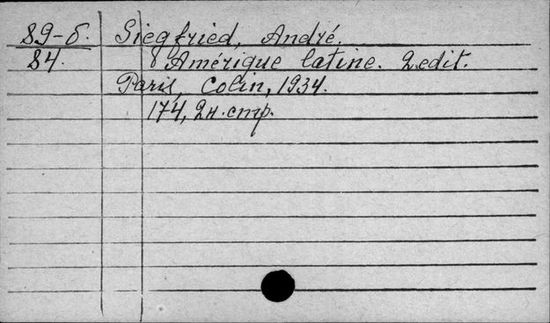 89-б. Siegfried, André.
84. Amérique latine. 2 edit.
Paris, Colin, 1934.
174, 2н. стр.